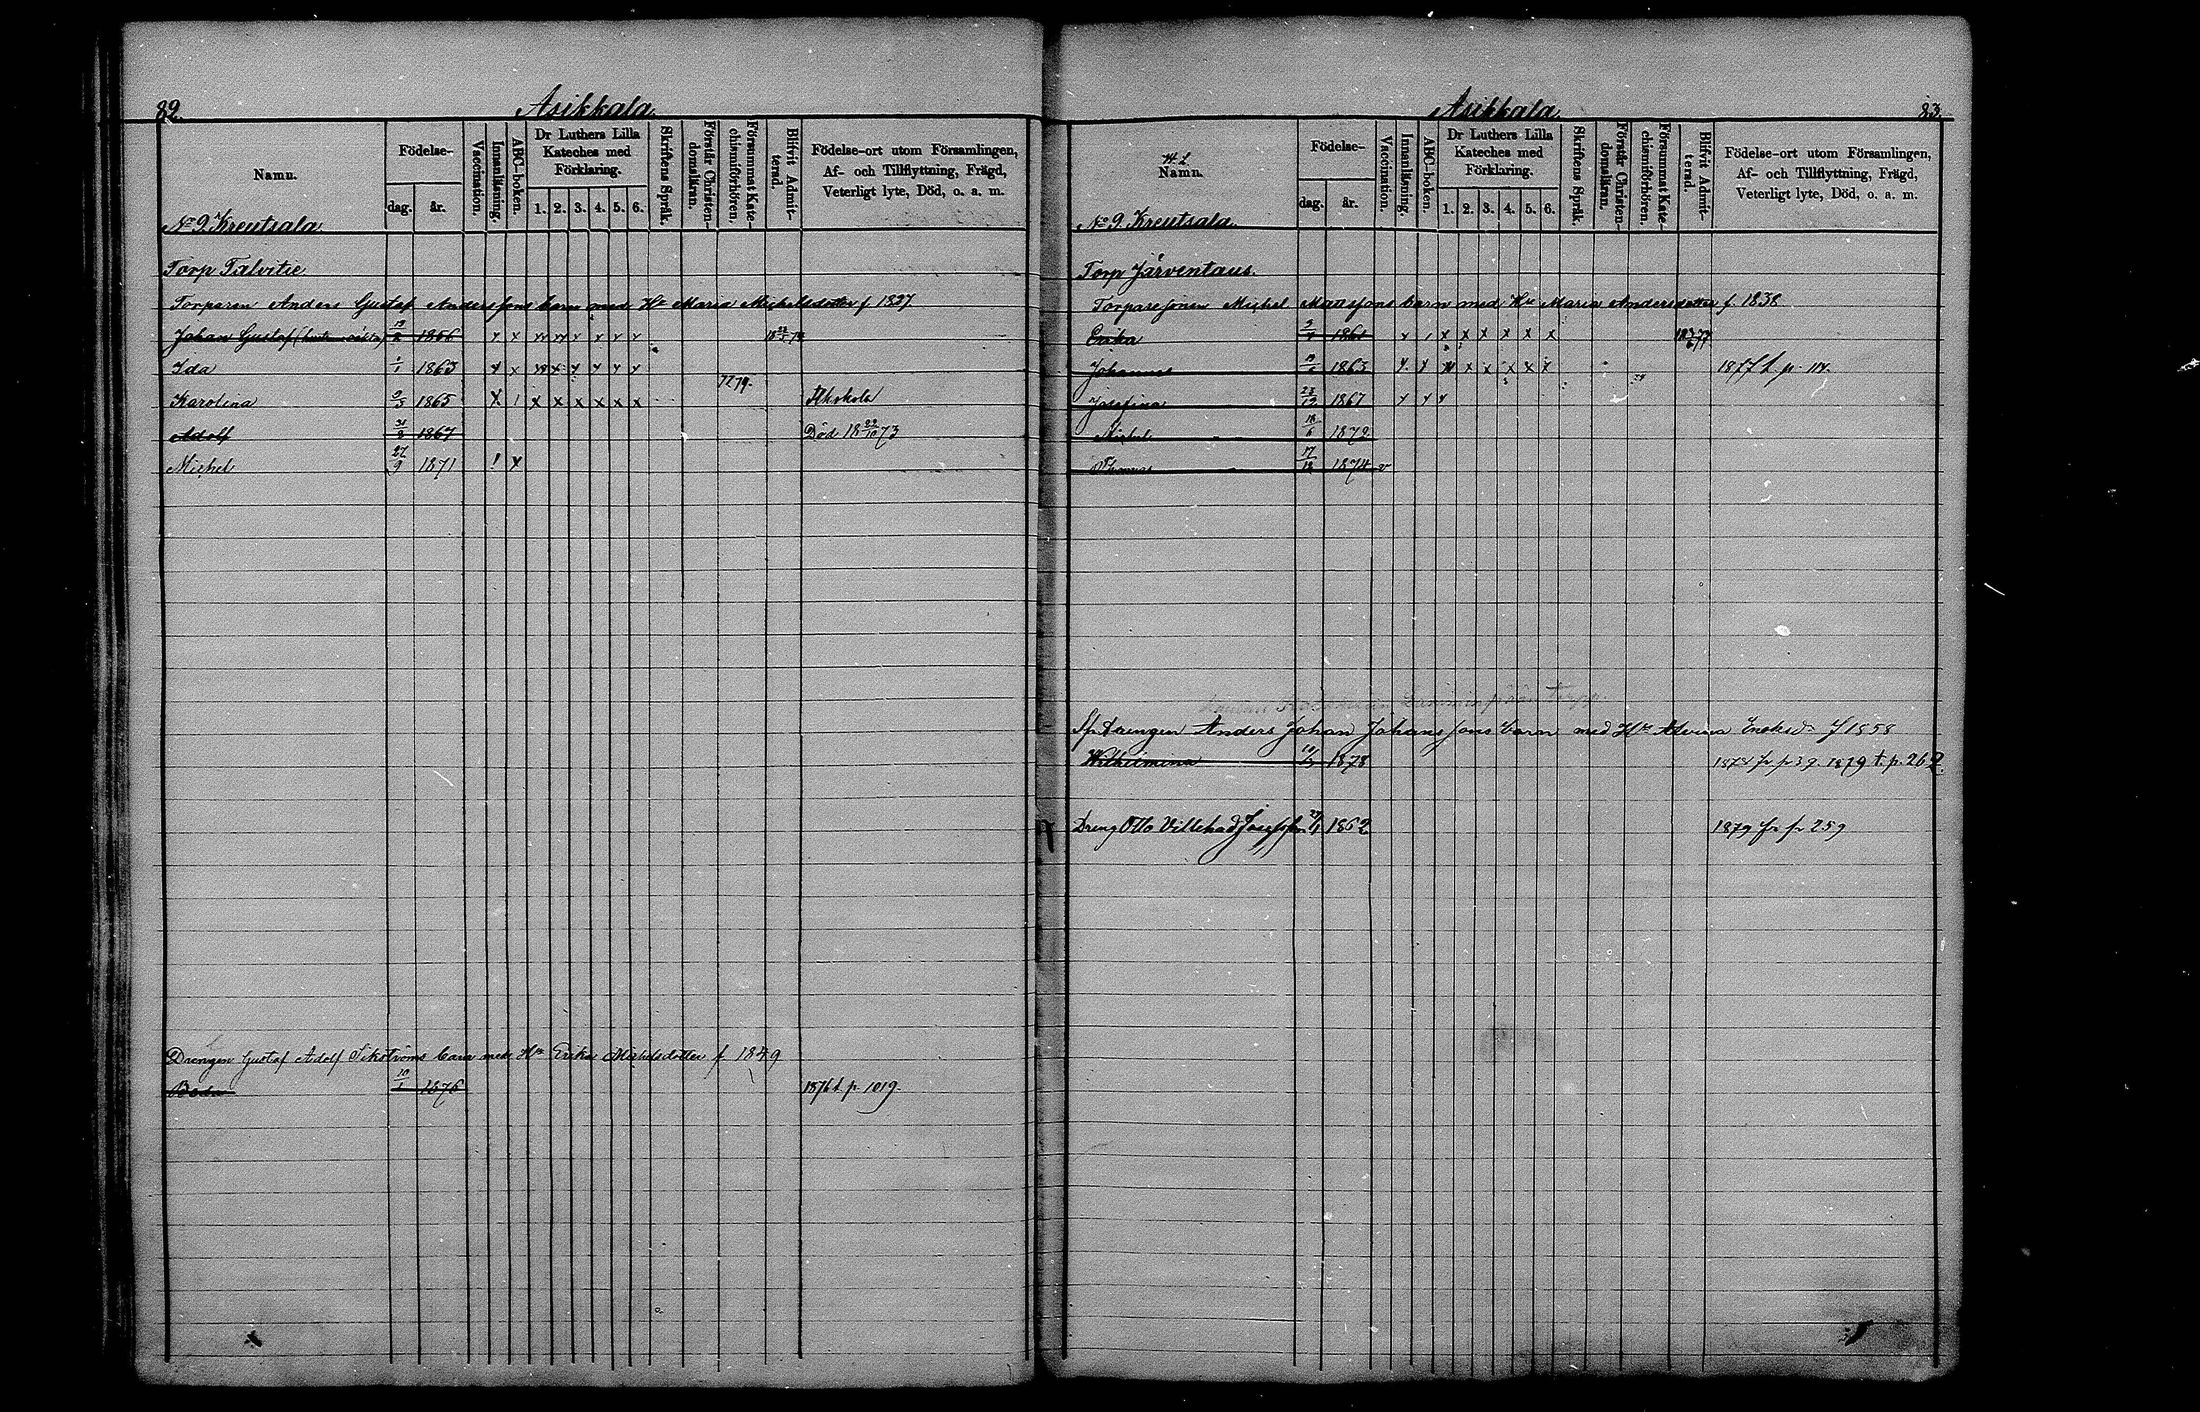 82.
Asikkala.
Namn.
Födelse-
dag.
år.
Vaccination.
Innanläsning.
ABC-boken.
Dr Luthers Lilla
Kateches med
Förklaring.
1. 2. 3. 4. 5. 6.
Skriftens Språk.
Förstår Christen-
domsläran.
Försummat Kate-
chismiförhören.
Blifvit Admit-
terad.
Födelse-ort utom Församlingen,
Af- och Tillflyttning, Frägd,
Veterligt lyte, Död, o. a. m.
No 9 Kreutsala.
Torp Talvitie
Torparen Anders Gustaf Anderssons barn med Hu Maria Michelsdotter f 1827
Johan Gustaf 1856
Ida 1/1 1863
77 79.
Karolina 9/3 1865
Adolf 1867 Död 18 29/10 73
Michel 27/9 1871
Drengen Gustaf Adolf Sikströms barn med Hu Erika Michelsdotter f 1849
Beda 10/1 1876 1876 t. p. 1019.
Asikkala.
83.
Namn.
Födelse-
dag.
år.
Vaccination.
Innanläsning.
ABC-boken.
Dr Luthers Lilla
Kateches med
Förklaring.
1. 2. 3. 4. 5. 6.
Skriftens Språk.
Förstår Christen-
domsläran.
Försummat Kate-
chismiförhören.
Blifvit Admit-
terad.
Födelse-ort utom Församlingen,
Af- och Tillflyttning, Frägd,
Veterligt lyte, Död, o. a. m.
No 9. Kreutsala.
Torp Järventaus.
Torparesonen Michel Mattssons barn med Hu Maria Andersdotter f. 1838
Erika 1861
Johannes 1863 1877 t. p. 114.
Josefina 23/12 1867
Michel 18/6 1872
Thomas 17/12 1874 v
Drengen Anders Johan Johanssons barn med Hu Alvina f 1858
Wilhelmina 1878 1878 fr p 39. 1879 t. p. 262.
Dreng Otto Villehad Josefsson 1862 1879 fr p 259